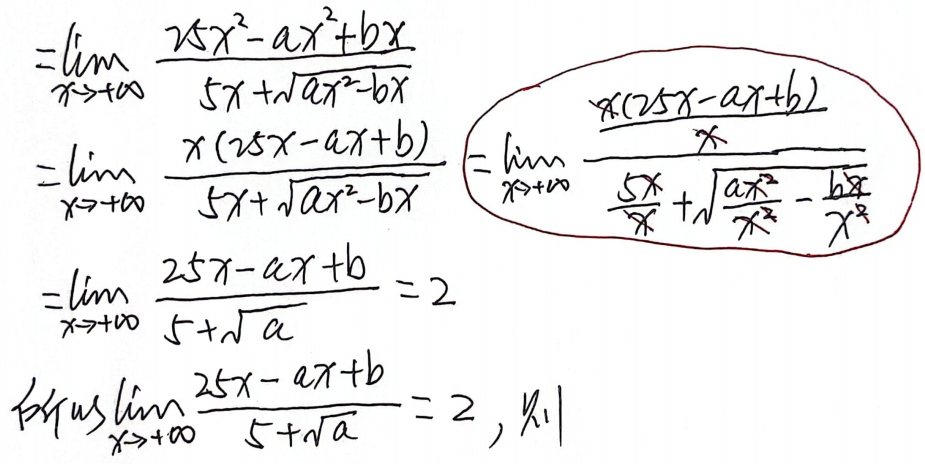 =lim x→+∞ (25x²-ax²+bx)/(5x+√(ax²-bx))
=lim x→+∞ (x(25x-ax+b))/(5x+√(ax²-bx)) =lim x→+∞ (x(25x-ax+b)/x)/(5x/x+√(ax²/x²-bx/x²))
=lim x→+∞ (25x-ax+b)/(5+√a) =2
所以 lim x→+∞ (25x-ax+b)/(5+√a) =2, 则